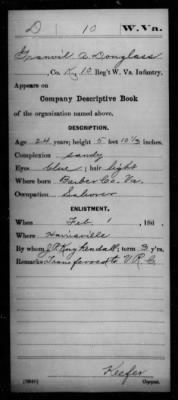 D 10 W. Va.
Granvil A. Douglass
, Co. K, 10 Reg't W. Va. Infantry.
Appears on
Company Descriptive Book
of the organization named above.
DESCRIPTION.
Age 24 years; height 5 feet 10 1/2 inches.
Complexion sandy
Eyes blue; hair light
Where born Barber Co. Va.
Occupation Laborer
ENLISTMENT.
When Feb. 1, 186 .
Where Harrisville
By whom Kendall; term 3 y'rs.
Remarks: Transferred to V R C
Keefer
Copyist.